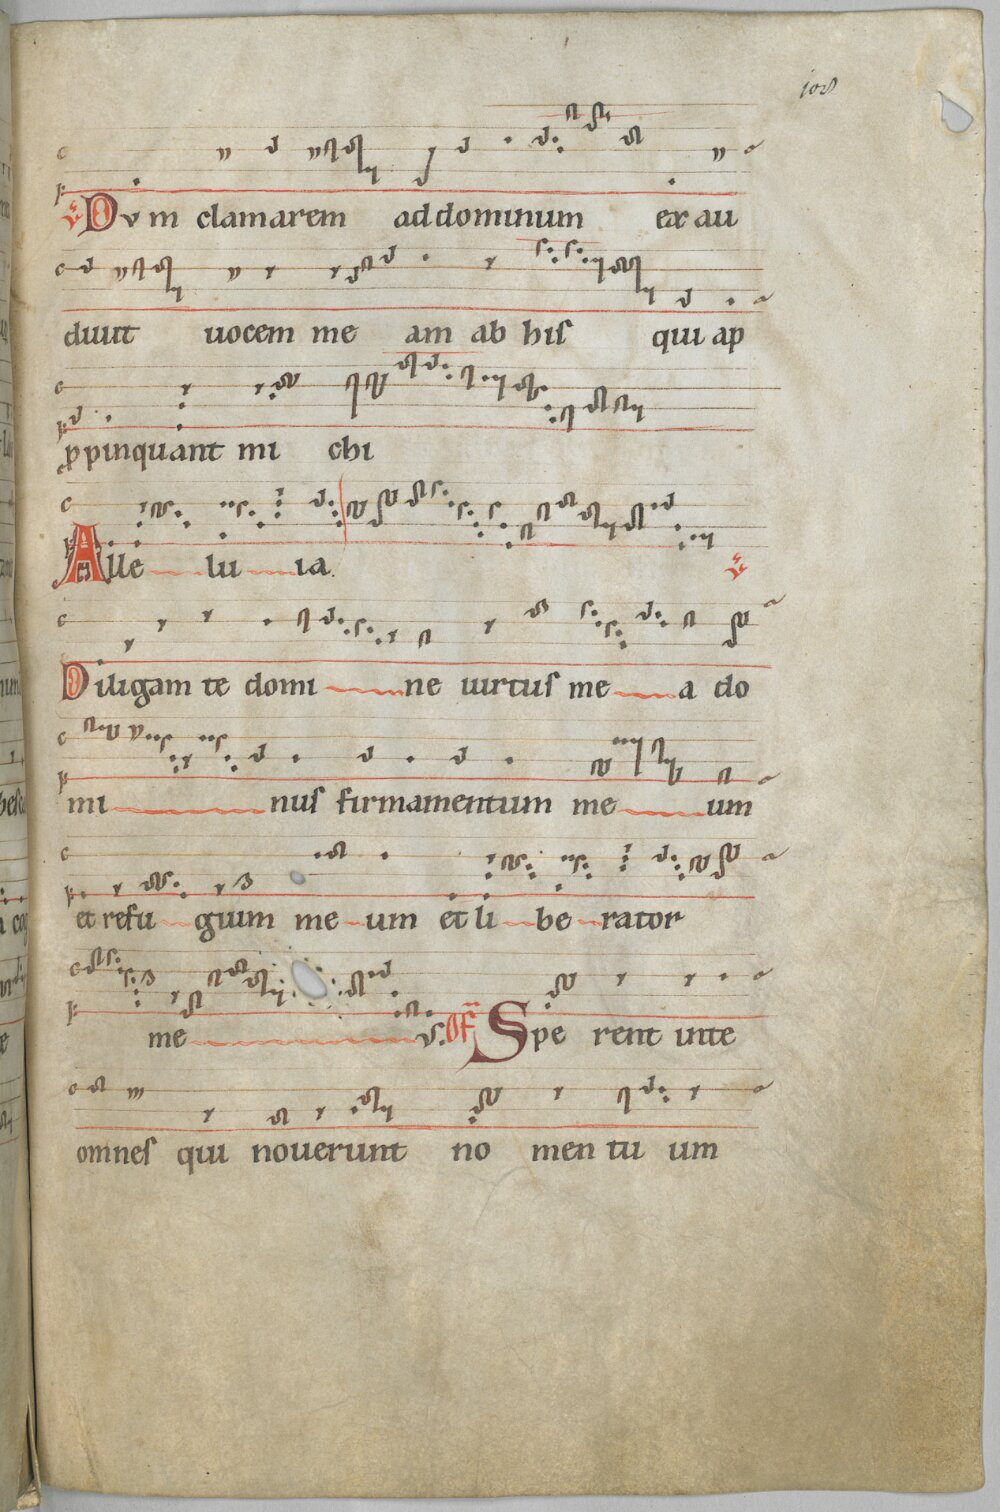 108
℣ Dum clamarem ad dominum ex au
diuit uocem me am ab his qui ap
ppinquant mi chi
Alle lu ia. ℣
Diligam te domi ne uirtus me a do
mi nus firmamentum me um
et refu gium me um et li be rator
me us. Of Spe rent inte
omnes qui nouerunt no men tu um